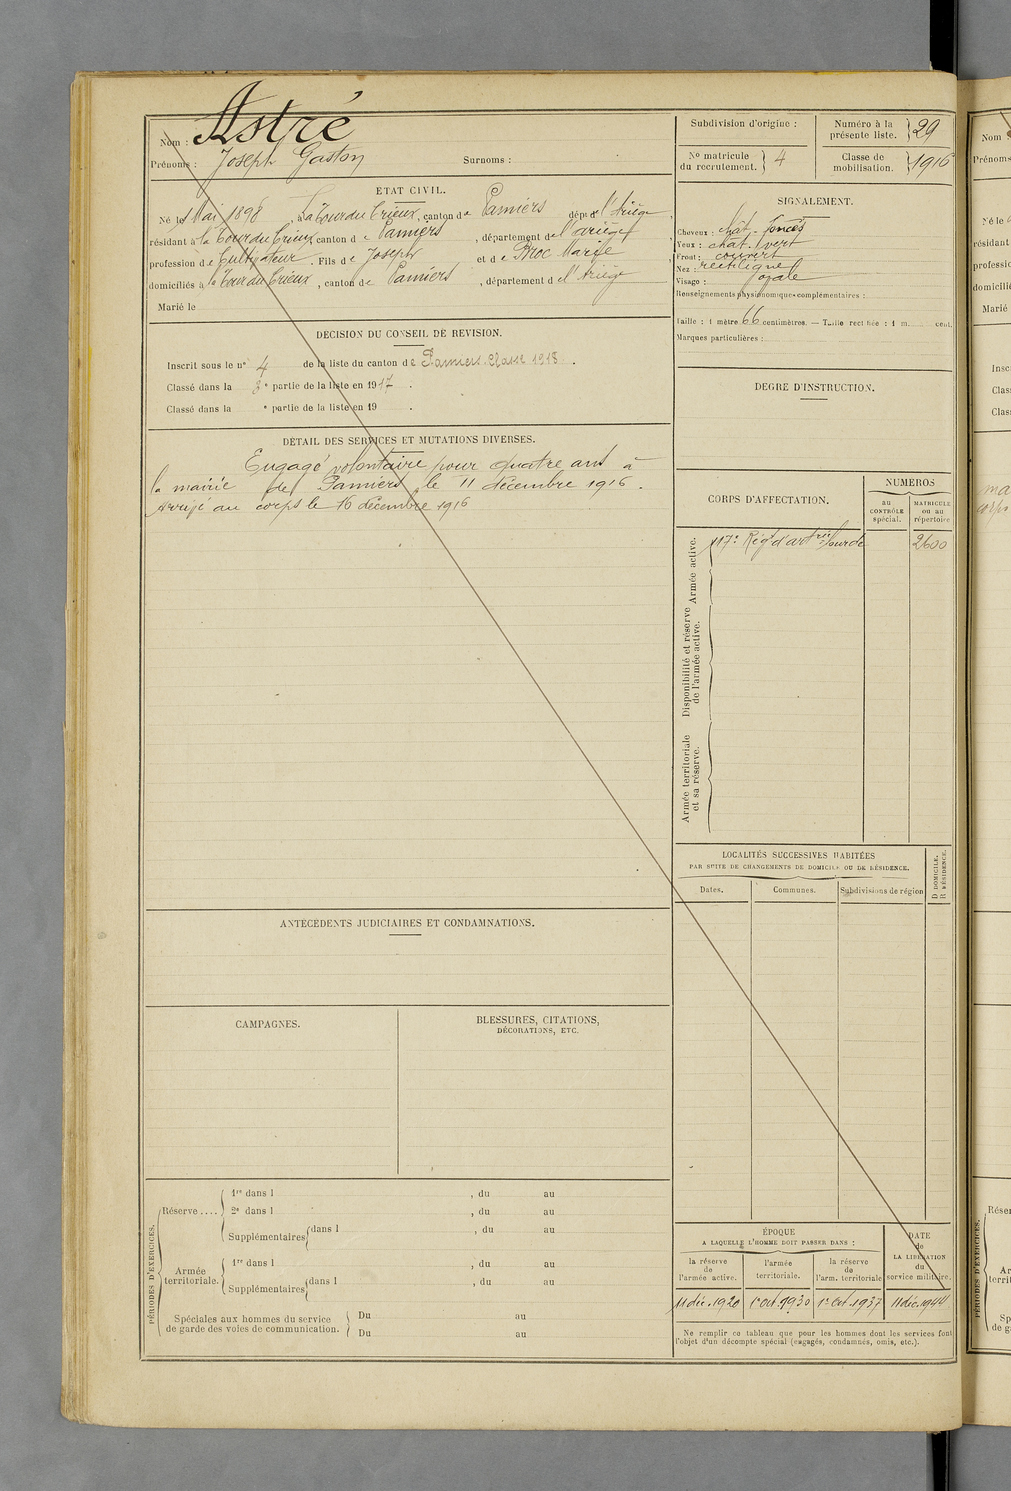 Nom : Astré
Prénoms : Joseph Gaston Surnoms :
ETAT CIVIL.
Né le 1 Mai 1898, à la Tour du Crieux, canton de Pamiers dépt de l'Ariège,
résidant à la Tour du Crieux canton de Pamiers, département de l'ariège,
profession de Cultivateur. Fils de Joseph et de Broc Marie,
domiciliés à la Tour du Crieux, canton de Pamiers, département de l'Ariège
Marié le
DECISION DU CONSEIL DE REVISION.
Inscrit sous le n° 4 de la liste du canton de Pamiers. Classe 1918.
Classé dans la 3e partie de la liste en 1917.
Classé dans la e partie de la liste en 19 .
DÉTAIL DES SERVICES ET MUTATIONS DIVERSES.
Engagé volontaire pour quatre ans à
la mairie de Pamiers le 11 décembre 1916.
Arrivé au corps le 16 décembre 1916
ANTÉCÉDENTS JUDICIAIRES ET CONDAMNATIONS.
CAMPAGNES.
BLESSURES, CITATIONS,
DÉCORATIONS, ETC.
PÉRIODES D'EXERCICES.
Réserve ....
1re dans l , du au
2e dans l , du au
Supplémentaires dans l , du au
Armée
territoriale.
1re dans l , du au
Supplémentaires dans l , du au
Spéciales aux hommes du service
de garde des voies de communication.
Du au
Du au
Subdivision d'origine :
Numéro à la
présente liste. 29
No matricule
du recrutement. 4
Classe de
mobilisation. 1916
SIGNALEMENT.
Cheveux : chât. foncés
Yeux : chât. vert
Front : couvert
Nez : rectiligne
Visage : ovale
Renseignements physionomiques complémentaires :
Taille : 1 mètre 66 centimètres. — Taille rectifiée : 1 m. cent.
Marques particulières :
DEGRE D'INSTRUCTION.
CORPS D'AFFECTATION.
NUMEROS
au
CONTRÔLE
spécial.
MATRICULE
ou au
répertoire
Armée active.
117e Régt d'artrie lourde 2600
Disponibilité et réserve
de l'armée active.
Armée territoriale
et sa réserve.
LOCALITÉS SUCCESSIVES HABITÉES
PAR SUITE DE CHANGEMENTS DE DOMICILE OU DE RÉSIDENCE.
Dates.
Communes.
Subdivisions de région
D DOMICILE.
R RÉSIDENCE.
ÉPOQUE
A LAQUELLE L'HOMME DOIT PASSER DANS :
la réserve
de
l'armée active.
l'armée
territoriale.
la réserve
de
l'arm. territoriale
DATE
de
LA LIBÉRATION
du
service militaire.
11 déc. 1920 1er oct. 1930 1er Oct. 1937 11 déc. 1944
Ne remplir ce tableau que pour les hommes dont les services font
l'objet d'un décompte spécial (engagés, condamnés, omis, etc.).